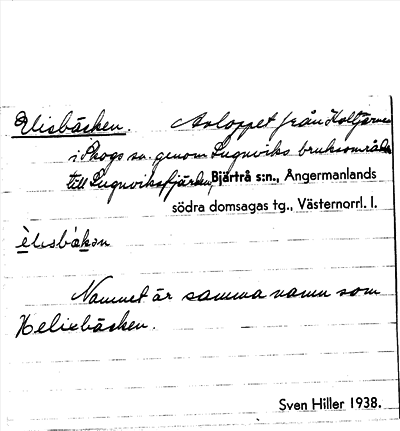 Elisbäcken. Avloppet från Holtjärnen
i Skogs sn. genom Lugnviks bruksområde
till Lugnviksfjärden, Bjärtrå s:n., Ångermanlands
södra domsagas tg., Västernorrl. l.
èlisbäkən
Namnet är samma namn som
Helixbäcken.
Sven Hiller 1938.